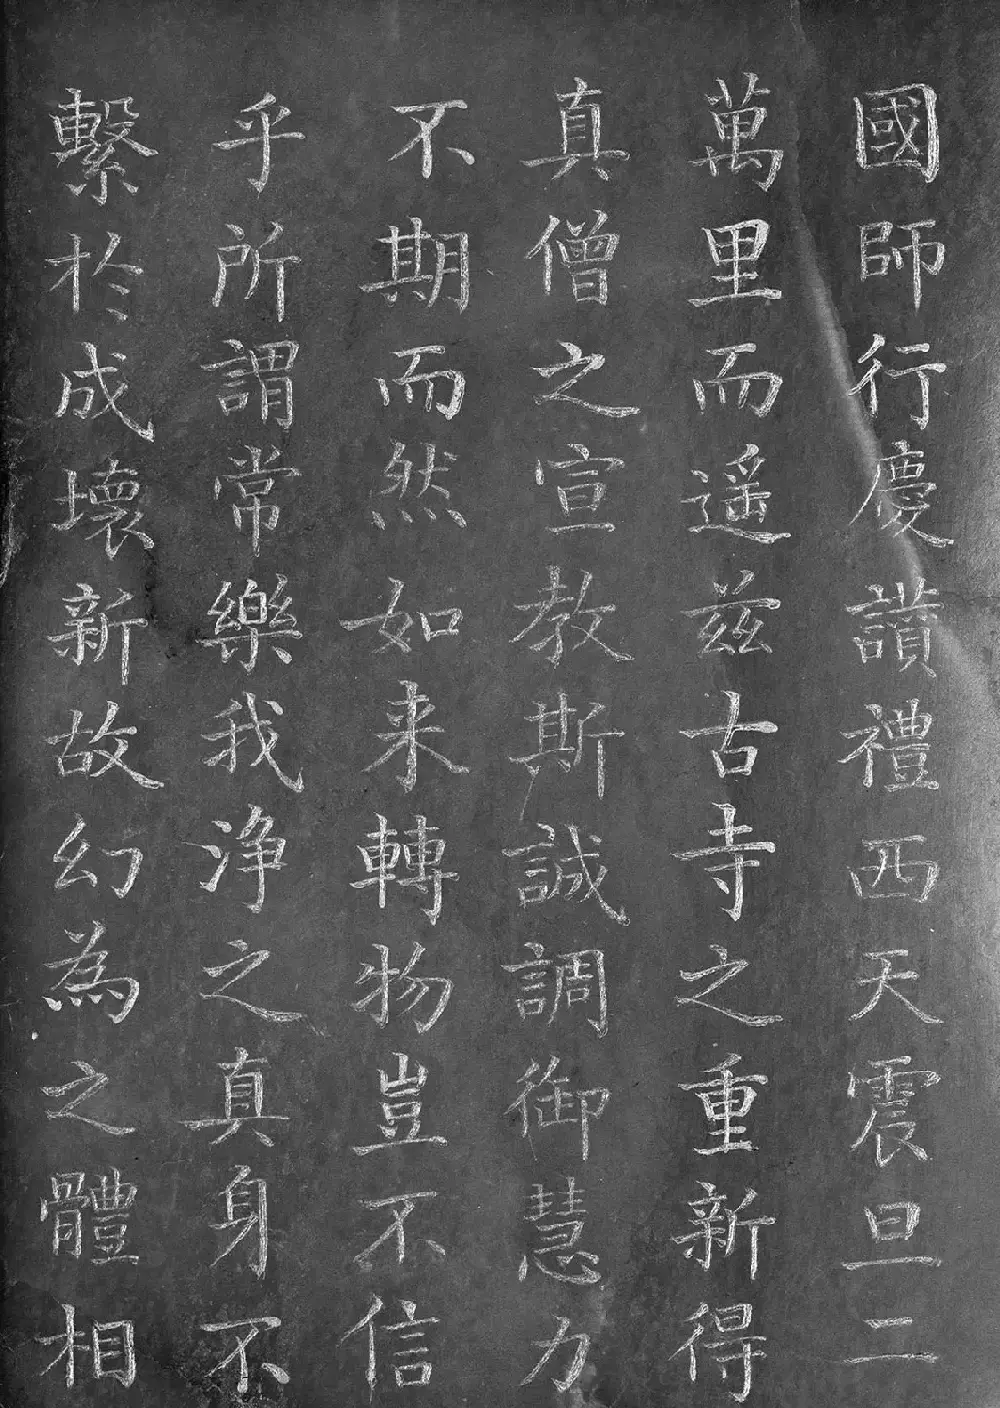 國師行慶讃禮西天震旦二
萬里而遥兹古寺之重新得
真僧之宣教斯誠調御慧力
不期而然如来轉物豈不信
乎所謂常樂我浄之真身不
繫於成壞新故幻為之體相